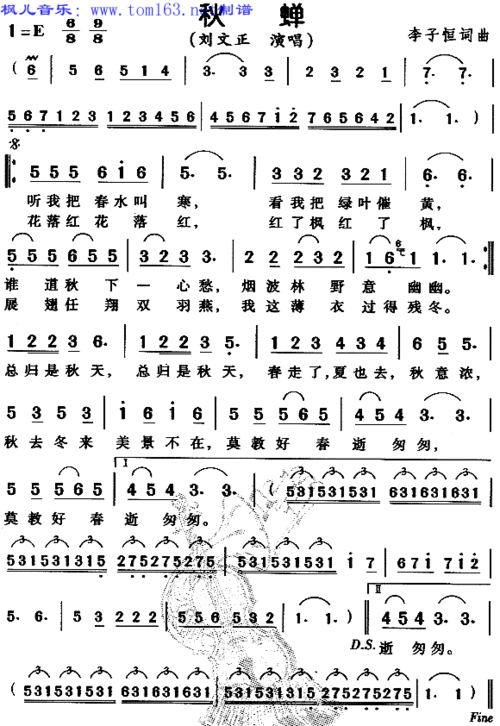 枫儿音乐: www.tom163.net 制谱
秋 蝉
1=E 6/8 9/8
(刘文正 演唱)
李子恒词曲
( 6 | 5 6 5 1 4 | 3. 3 3 3 | 2 3 2 1 | 7. 7. |
5 6 7 1 2 3 1 2 3 4 5 6 | 4 5 6 7 1 2 7 6 5 6 4 2 | 1. 1. ) |
5 5 5 6 1 6 | 5. 5. | 3 3 2 3 2 1 | 6. 6. |
听我把 春水叫 寒, 看我把 绿叶催 黄,
花落红 花 落 红, 红了枫 红 了 枫,
5 5 5 6 5 5 | 3 2 3 3. | 2 2 2 3 2 | 1 6 1. :|
谁 道秋 下 一 心愁, 烟波林 野意 幽幽。
展 翅任 翔 双 羽燕, 我这薄 衣 过得 残冬。
1 2 2 3 6. | 1 2 2 3 3. | 2 2 3 4 3 4 | 6 5 5. |
总归是 秋天, 总归是 秋天, 春走了,夏也去, 秋意浓,
5 3 5 3 | 1 6 1 6 | 5 5 5 6 5 | 4 5 4 3. 3. |
秋 去 冬 来 美 景 不 在, 莫 教 好 春 逝 匆 匆,
I
5 5 5 6 5 | 4 5 4 3. 3. | ( 531531531 631631631 |
莫 教 好 春 逝 匆 匆。
531531315 275275275 | 531531531 1 7 | 6 7 1 7 1 2 |
5. 6. | 5 3 2 2 2 | 5 5 6 5 3 2 | 1. 1. ) |
II
4 5 4 3. 3. |
D.S. 逝 匆匆。
( 531531531 631631631 | 531531315 275275275 | 1. 1. ) ‖
Fine